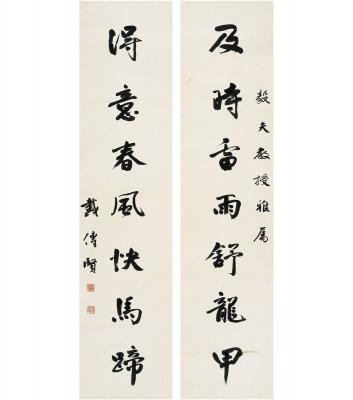 毅夫教授雅屬
及時雷雨舒龍甲
得意春風快馬蹄
戴傳賢